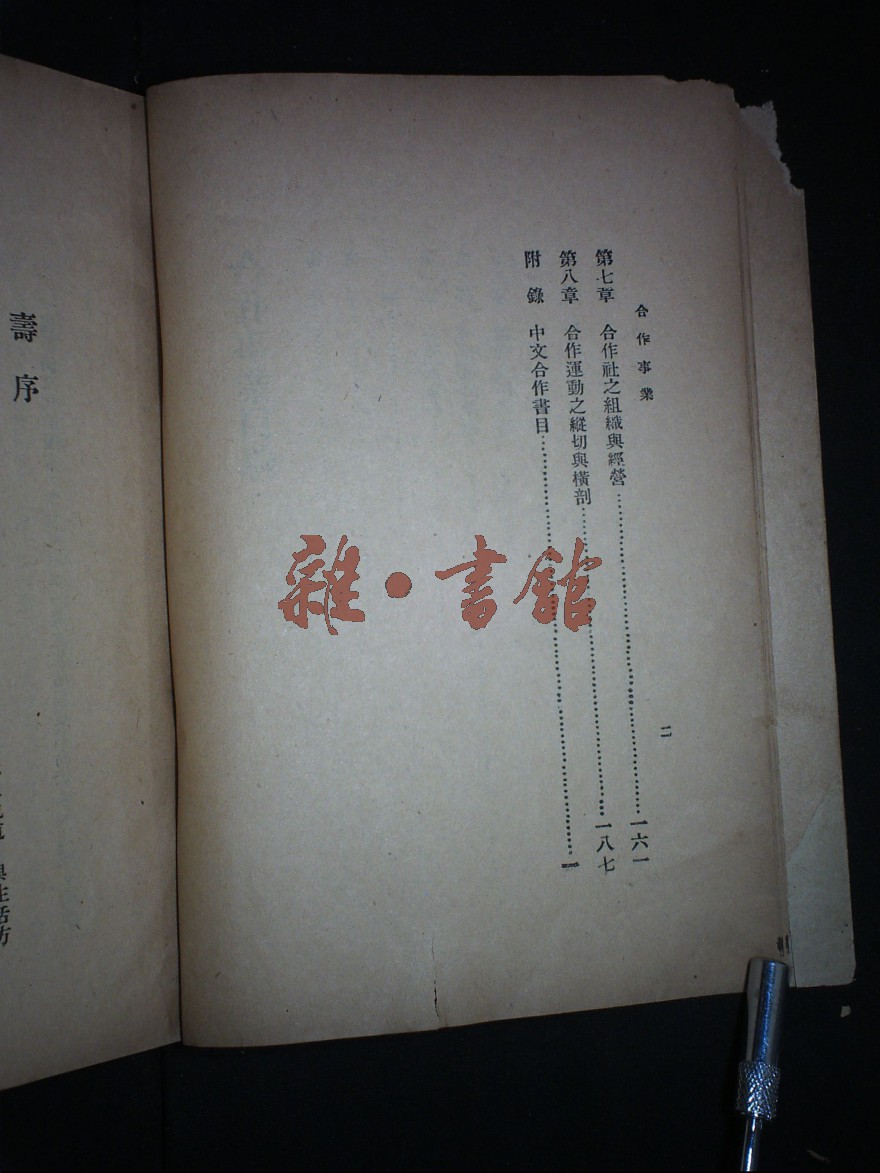 合作事業
二
第七章 合作社之組織與經營……一六一
第八章 合作運動之縱切與橫剖……一八七
附錄 中文合作書目……一
壽序
與生活方
雜•書館